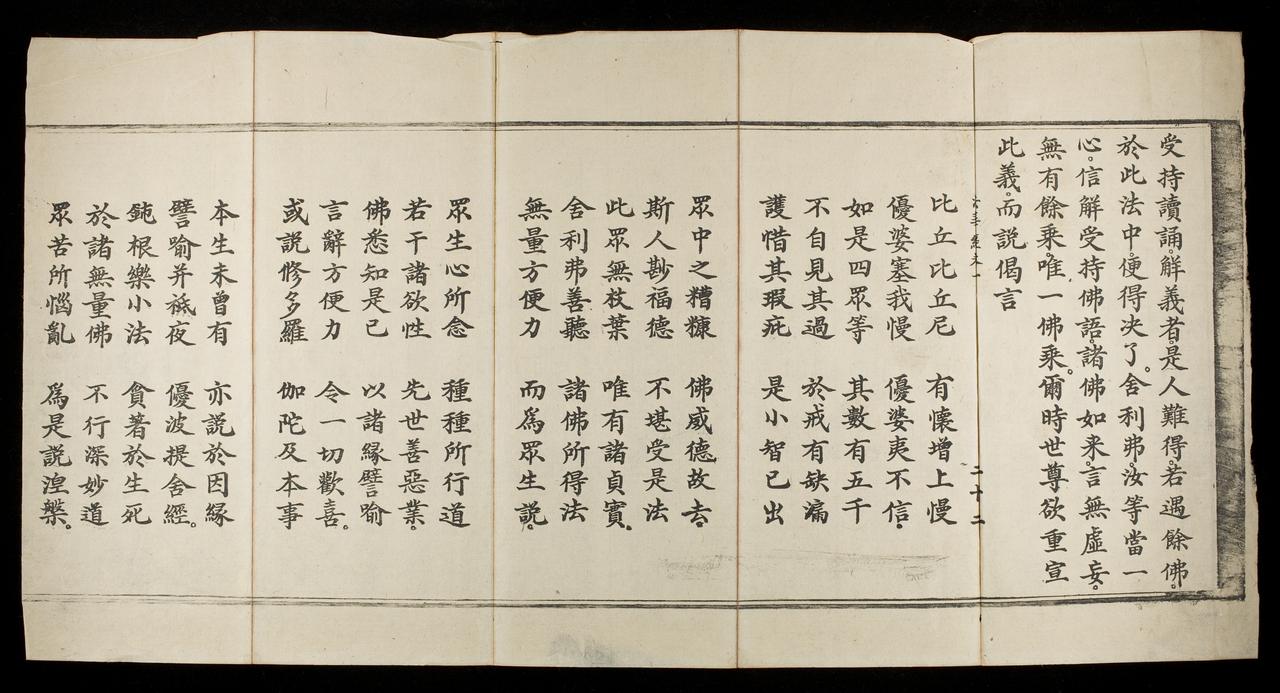 受持讀誦。解義者。是人難得。若遇餘佛。
於此法中。便得决了。舍利弗。汝等當一
心。信解受持佛語。諸佛如来。言無虛妄。
無有餘乘。唯一佛乘。爾時世尊欲重宣
此義。而説偈言
二十二
比丘比丘尼　有懷增上慢
優婆塞我慢　優婆夷不信。
如是四眾等　其數有五千
不自見其過　於戒有缺漏
護惜其瑕疵　是小智已出
眾中之糟糠　佛威德故去。
斯人尠福德　不堪受是法
此眾無枝葉　唯有諸貞實。
舍利弗善聽　諸佛所得法
無量方便力　而爲眾生説。
眾生心所念　種種所行道
若干諸欲性　先世善惡業。
佛悉知是已　以諸緣譬喻
言辭方便力　令一切歡喜。
或説修多羅　伽陀及本事
本生未曾有　亦説於因緣
譬喻并祇夜　優波提舍經。
鈍根樂小法　貪著於生死
於諸無量佛　不行深妙道
眾苦所惱亂　爲是説涅槃。